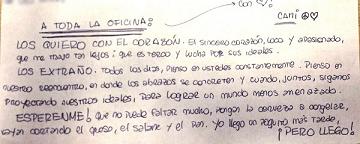 CON ♡.
A TODA LA OFICINA:
CAMI ☮♡
LOS QUIERO CON EL CORAZÓN. El sincero corazón, loco y apasionado,
que me trajo tan lejos: que es terco y lucha por sus ideales.
LOS EXTRAÑO. Todos los días, pienso en ustedes constantemente. Pienso en
nuestro reencuentro, en donde los abrazos se concreten y cuando, juntos, sigamos
proyectando nuestros ideales, para lograr un mundo menos amenazado.
ESPÉRENME! que no puede faltar mucho, pongan la cerveza a congelar,
vayan cortando el queso, el salame y el pan. Yo llego un poquito más tarde,
¡PERO LLEGO!